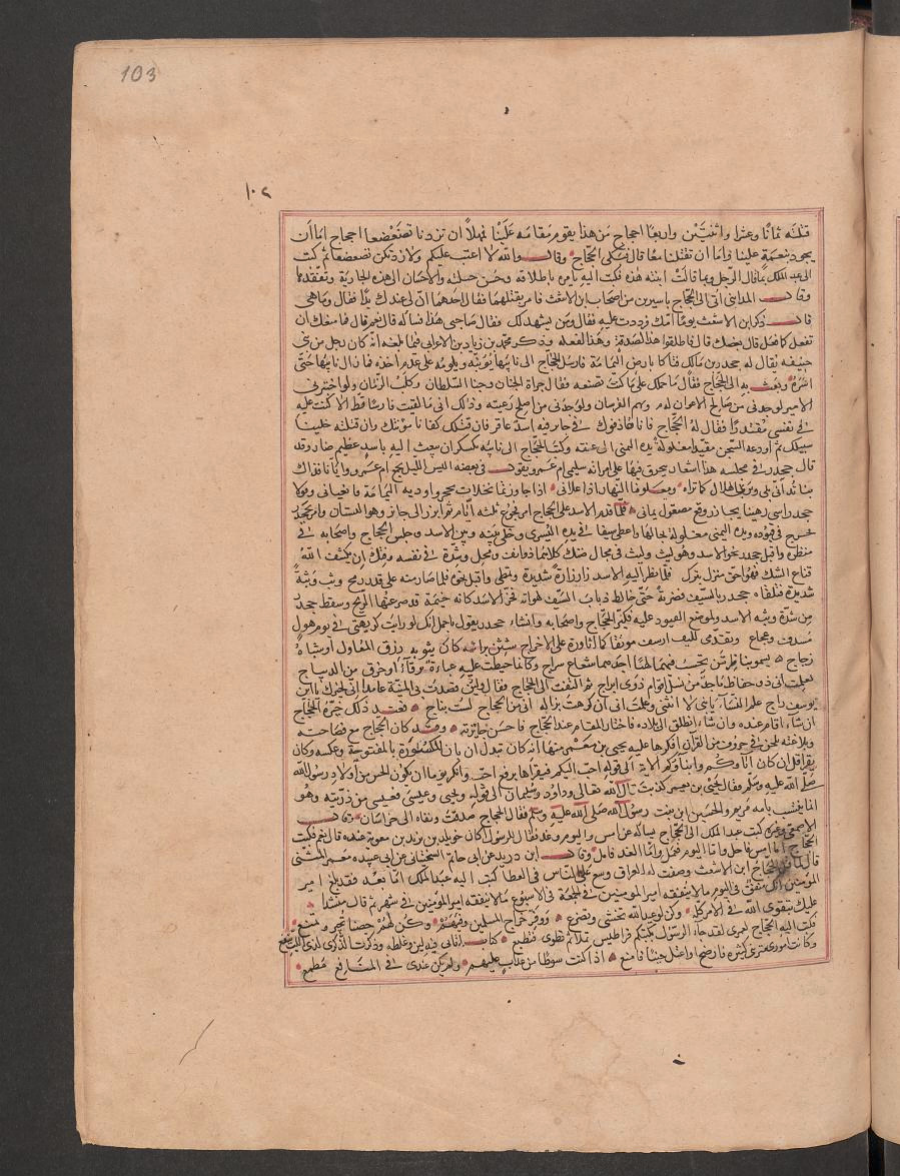 103
١٠٢
قتلته ثمانا وعشرا واثنتين واربعا احجاج من هذا يقوم مقامه علينا فمهلا ان تزدنا تضعضعا احجاج اما ان
يجود بنعمة علينا واما ان تقتلنا معا قال فبكى الحجاج وقال والله لا اعنت عليكم ولا زدتكن تضعضعا ثم كتب
الى عبد الملك بما قال الرجل وبما قالت ابنته هذه فكتب اليه يامره باطلاقه وحسن صلته والاحسان الى هذه الجارية وتفقدها
وقال المدايني اتى الى الحجاج باسيرين من اصحاب ابن الاشعث فامر بقتلهما فقال احدهما ان لى عندك يدا فقال وما هى
قال ذكر ابن الاشعث يوما امك فرددت عليه فقال ومن يشهد لك فقال صاحبى هذا فساله فقال نعم قال فما منعك ان
تفعل كما فعل قال بغضك قال فاطلقوا هذا لصدقه وهذا لفعله وذكر محمد بن زياد ابن الاعرابى فيما بلغه انه كان رجل من بنى
حنيفه يقال له جحدر بن مالك فتاكا بارض اليمامة فارسل الحجاج الى نايبها يؤنبه ويلومه على عدم اخذه فما زال نايبها حتى
اسره وبعث به الى الحجاج فقال ما حملك على ما كنت تصنعه فقال جراة الجنان وجفا السلطان وكلب الزمان ولو اختبرنى
الامير لوجدنى من صالح الاعوان وبهم الفرسان ولوجدنى من اصلح رعيته وذلك انى ما لقيت فارسا قط الا كنت عليه
فى نفسى مقتدرا فقال له الحجاج فانا قاذفوك فى حاير فيه اسد عاقر فان قتلك كفانا مؤنتك وان قتلته خلينا
سبيلك ثم اودعه السجن مقيدا مغلولة يده اليمنى الى عنقه وكتب الحجاج الى نايبه بكسكر ان يبعث اليه باسد عظيم ضار وقد
قال جحدر فى محبسه هذا اشعارا يتحزن فيها على امراته سليمى ام عمرو يقول فى بعضها اليس الليل يجمع ام عمرو وايانا فذاك
بنا تدانى بلى وترى الهلال كما نراه ويعلوها النهار اذا علانى اذا جاوزتما نخلات حجر واودية اليمامة فانعيانى وقولا
جحدر امسى رهينا يحاذر وقع مصقول يمانى فلما قدم الاسد على الحجاج امر به فجوع ثلثة ايام ثم ابرز الى حايز وهو البستان وامر بجحدر
فاخرج فى قيوده ويده اليمنى مغلولة بحالها واعطى سيفا فى يده اليسرى وخلى بينه وبين الاسد وجلس الحجاج واصحابه فى
منظره واقبل جحدر نحو الاسد وهو ليث وليث فى مجال ضنك كلاهما ذو انف ومحك وشدة فى نفسه وفتك ان يكشف الله
قناع الشك فهو احق منزل بترك فلما نظر اليه الاسد زار زارة شديدة وتمطى واقبل نحوه فلما صار منه على قدر رمح وثب وثبة
شديدة فتلقاه جحدر بالسيف فضربه حتى خالط ذباب السيف لهواته فخر الاسد كانه خيمة قد صرعتها الريح وسقط جحدر
من شدة وثبه الاسد وموضع القيود عليه فكبر الحجاج واصحابه وانشا جحدر يقول يا جمل انك لو رايت كريهتى فى يوم هول
مسدف وعجاج وتقدمى لليث ارسف موثقا كيما اثاوره على الاخراج شثن براثنه كان نيوبه زرق المعاول او شباة
زجاج يسمو بناظرتين تحسب فيهما لهبا احدهما شعاع سراج وكانما خيطت عليه عباءة برقاء او خرق من الديباج
لعلمت انى ذو حفاظ ماجد من نسل اقوام ذوى ابراج ثم التفت الى الحجاج فقال ولئن قصدت بى المنية عامدا انى لخيرك يا ابن
يوسف راج علم النساء بانى لا انثنى وعلمت انى ان كرهت نزاله انى من الحجاج لست بناج فعند ذلك خيره الحجاج
ان شاء اقام عنده وان شاء انطلق الى بلاده فاختار المقام عند الحجاج فاحسن جائزته وقد كان الحجاج مع فصاحته
وبلاغته يلحن فى حروف من القران انكرها عليه يحيى بن يعمر منها انه كان يبدل ان بان المكسورة بالمفتوحة وعكسه وكان
يقرا قل ان كان اباؤكم وابناؤكم الاية الى قوله احب اليكم فيقراها برفع احب وانكر يوما ان يكون الحسين من اولاد رسول الله
صلى الله عليه وسلم فقال يحيى بن يعمر كذبت قال الله تعالى وداود وسليمان الى قوله ويحيى وعيسى فعيسى من ذريته وهو
انما ينتسب بامه مريم والحسين ابن بنت رسول الله صلى الله عليه وسلم فقال الحجاج صدقت ونفاه الى خراسان وقال
الاصمعى وغيره كتب عبد الملك الى الحجاج يساله عن امس واليوم وغد فقال للرسول اكان خويلد بن يزيد بن معوية عنده قال نعم فكتب
الحجاج اما امس فاجل واما اليوم فعمل واما الغد فامل وقال ابن دريد عن ابى حاتم السجستانى عن ابى عبيده معمر بن المثنى
قال لما قتل الحجاج ابن الاشعث وصفت له العراق وسع على الناس فى العطا فكتب اليه عبد الملك اما بعد فقد بلغ امير
المؤمنين انك تنفق فى اليوم ما لا ينفقه امير المؤمنين فى الجمعة وفى الاسبوع ما لا ينفقه امير المؤمنين فى شهر ثم قال منشدا
عليك بتقوى الله فى الامر كله وكن لوعيد الله تخشى وتضرع ووفر خراج المسلمين وفيئهم وكن لهم حصنا تجير وتمنع
فكتب اليه الحجاج لعمرى لقد جاء الرسول بكتبكم قراطيس تملا ثم تطوى فتطبع كتاب اتانى فيه لين وغلظه وذكرت الذكرى لذى اللب تنفع
وكانت امور تعترينى كثيره فارضخ او اعتل حينا فامنع اذا كنت سوطا من عذاب عليهم ولم يكن عندى فى المنافع مطمع